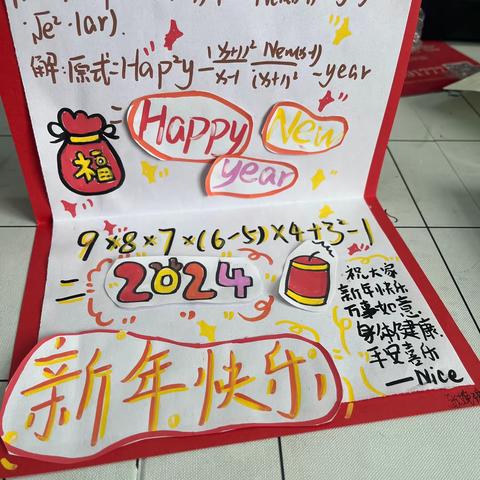 ·√e²·1ar).
解:原式=Hap²y-(x+1)²/x-1·New(x-1)/(x+1)²-year
=Happy New
year
福
9×8×7×(6-5)×4+3²-1
=2024
祝大家
新年快乐
万事如意
身体健康
平安喜乐
—Nice
新年快乐